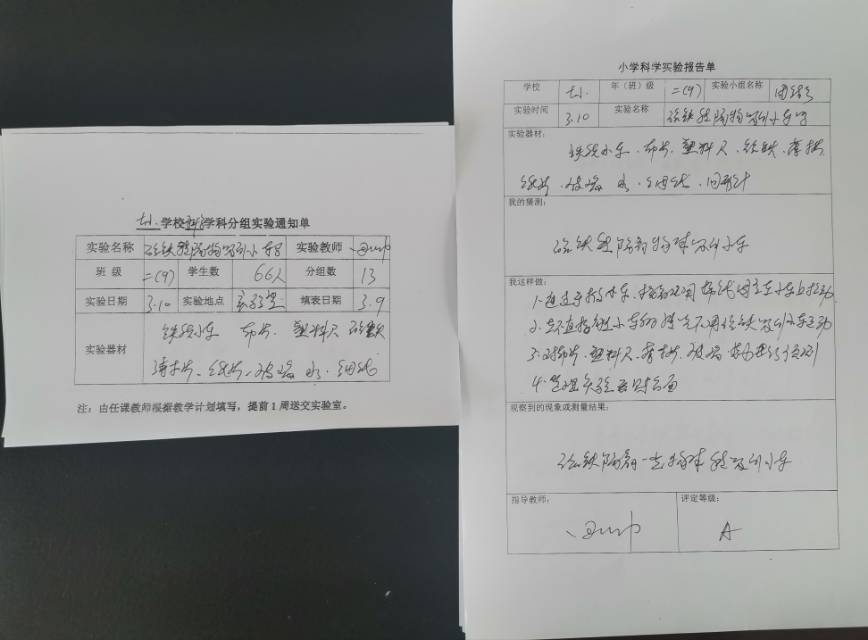 学校 学科分组实验通知单
实验名称 磁铁能隔物吸引小车吗 实验教师
班 级 二(9) 学生数 66人 分组数 13
实验日期 3.10 实验地点 实验室 填表日期 3.9
实验器材 铁皮小车 布片、塑料尺 磁铁
薄木片、纸片、玻璃 水、细线
注：由任课教师根据教学计划填写，提前1周送交实验室。
小学科学实验报告单
学校 年（班）级 二(9) 实验小组名称 团结
实验时间 3.10 实验名称 磁铁能隔物吸引小车吗
实验器材：
铁皮小车、布片、塑料尺、磁铁、薄木片
纸片、玻璃 水、细线、回形针
我的猜测：
磁铁能隔着物体吸引小车
我这样做：
2.在不直接接触小车的情况下用磁铁吸引小车运动
3.对布片、塑料尺、薄木片、玻璃
4.整理实验器材台面
观察到的现象或测量结果：
磁铁隔着一些物体能吸引小车
指导教师： 评定等级：
A